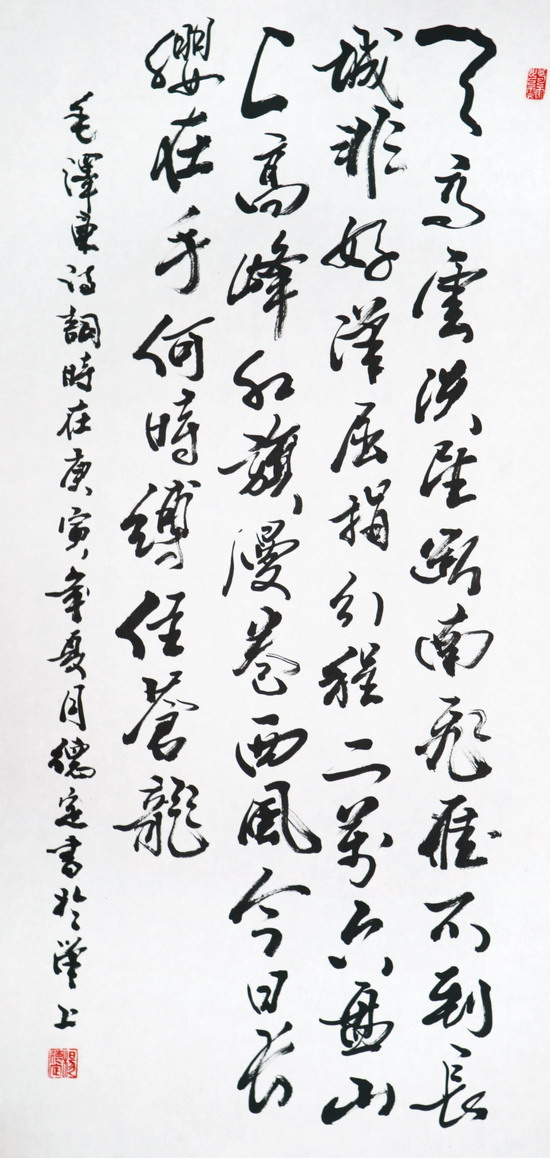 天高雲淡望斷南飛雁不到長
城非好漢屈指行程二萬六盤山
上高峰紅旗漫卷西風今日長
纓在手何時縛住蒼龍
毛澤東詩詞時在庚寅年夏月德定書於漢上